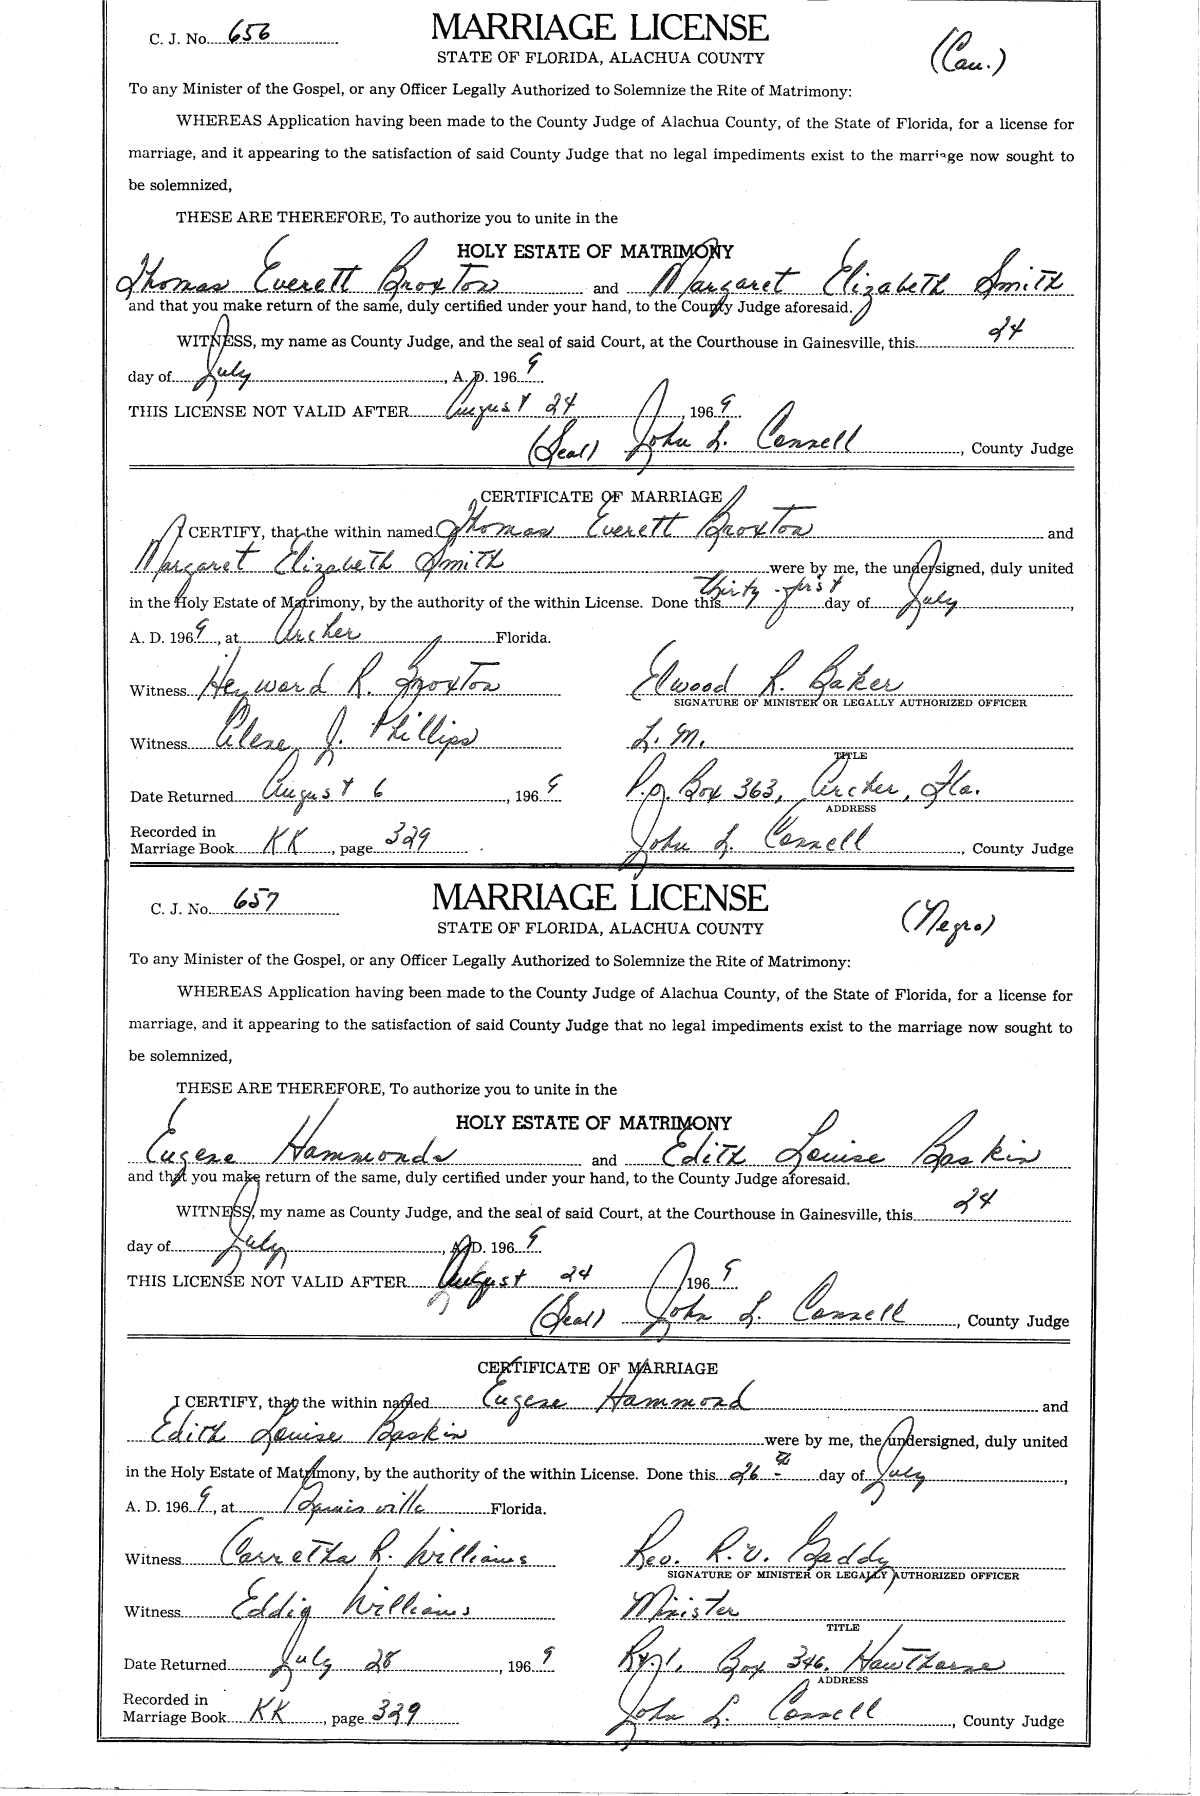 C. J. No. 656
MARRIAGE LICENSE
STATE OF FLORIDA, ALACHUA COUNTY
(Cau.)
To any Minister of the Gospel, or any Officer Legally Authorized to Solemnize the Rite of Matrimony:
WHEREAS Application having been made to the County Judge of Alachua County, of the State of Florida, for a license for
marriage, and it appearing to the satisfaction of said County Judge that no legal impediments exist to the marriage now sought to
be solemnized,
THESE ARE THEREFORE, To authorize you to unite in the
HOLY ESTATE OF MATRIMONY
Thomas Everett Broxton and Margaret Elizabeth Smith
and that you make return of the same, duly certified under your hand, to the County Judge aforesaid.
WITNESS, my name as County Judge, and the seal of said Court, at the Courthouse in Gainesville, this 24
day of July, A. D. 1969
THIS LICENSE NOT VALID AFTER August 24, 1969
(Seal) John L. Connell, County Judge
CERTIFICATE OF MARRIAGE
I CERTIFY, that the within named Thomas Everett Broxton and
Margaret Elizabeth Smith were by me, the undersigned, duly united
in the Holy Estate of Matrimony, by the authority of the within License. Done this thirty-first day of July,
A. D. 1969, at Archer Florida.
Witness Heyward R. Broxton Elwood R. Baker
SIGNATURE OF MINISTER OR LEGALLY AUTHORIZED OFFICER
Witness Alene J. Phillips L. M.
TITLE
Date Returned August 6, 1969 P.O. Box 363, Archer, Fla.
ADDRESS
Recorded in
Marriage Book KK, page 329 John L. Connell, County Judge
C. J. No. 657
MARRIAGE LICENSE
STATE OF FLORIDA, ALACHUA COUNTY
(Negro)
To any Minister of the Gospel, or any Officer Legally Authorized to Solemnize the Rite of Matrimony:
WHEREAS Application having been made to the County Judge of Alachua County, of the State of Florida, for a license for
marriage, and it appearing to the satisfaction of said County Judge that no legal impediments exist to the marriage now sought to
be solemnized,
THESE ARE THEREFORE, To authorize you to unite in the
HOLY ESTATE OF MATRIMONY
Eugene Hammonds and Edith Louise Baskin
and that you make return of the same, duly certified under your hand, to the County Judge aforesaid.
WITNESS, my name as County Judge, and the seal of said Court, at the Courthouse in Gainesville, this 24
day of July, A. D. 1969
THIS LICENSE NOT VALID AFTER August 24 1969
(Seal) John L. Connell, County Judge
CERTIFICATE OF MARRIAGE
I CERTIFY, that the within named Eugene Hammond and
Edith Louise Baskin were by me, the undersigned, duly united
in the Holy Estate of Matrimony, by the authority of the within License. Done this 26th day of July,
A. D. 1969, at Gainisville Florida.
Witness Carretha R. Williams Rev. R. V. Gaddy
SIGNATURE OF MINISTER OR LEGALLY AUTHORIZED OFFICER
Witness Eddig Williams Minister
TITLE
Date Returned July 28, 1969 Rt. 1, Box 346, Hawthorne
ADDRESS
Recorded in
Marriage Book KK, page 329 John L. Connell, County Judge